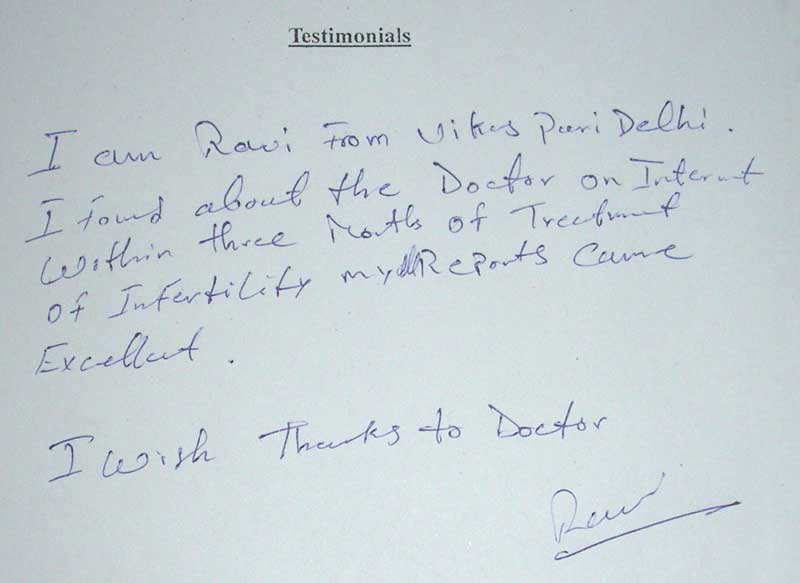 Testimonials
I am Ravi From Vikas Puri Delhi.
I Found about the Doctor on Internet
Within three Months of Treatment
of Infertility my Reports Came
Excellent.
I Wish Thanks to Doctor
Ravi